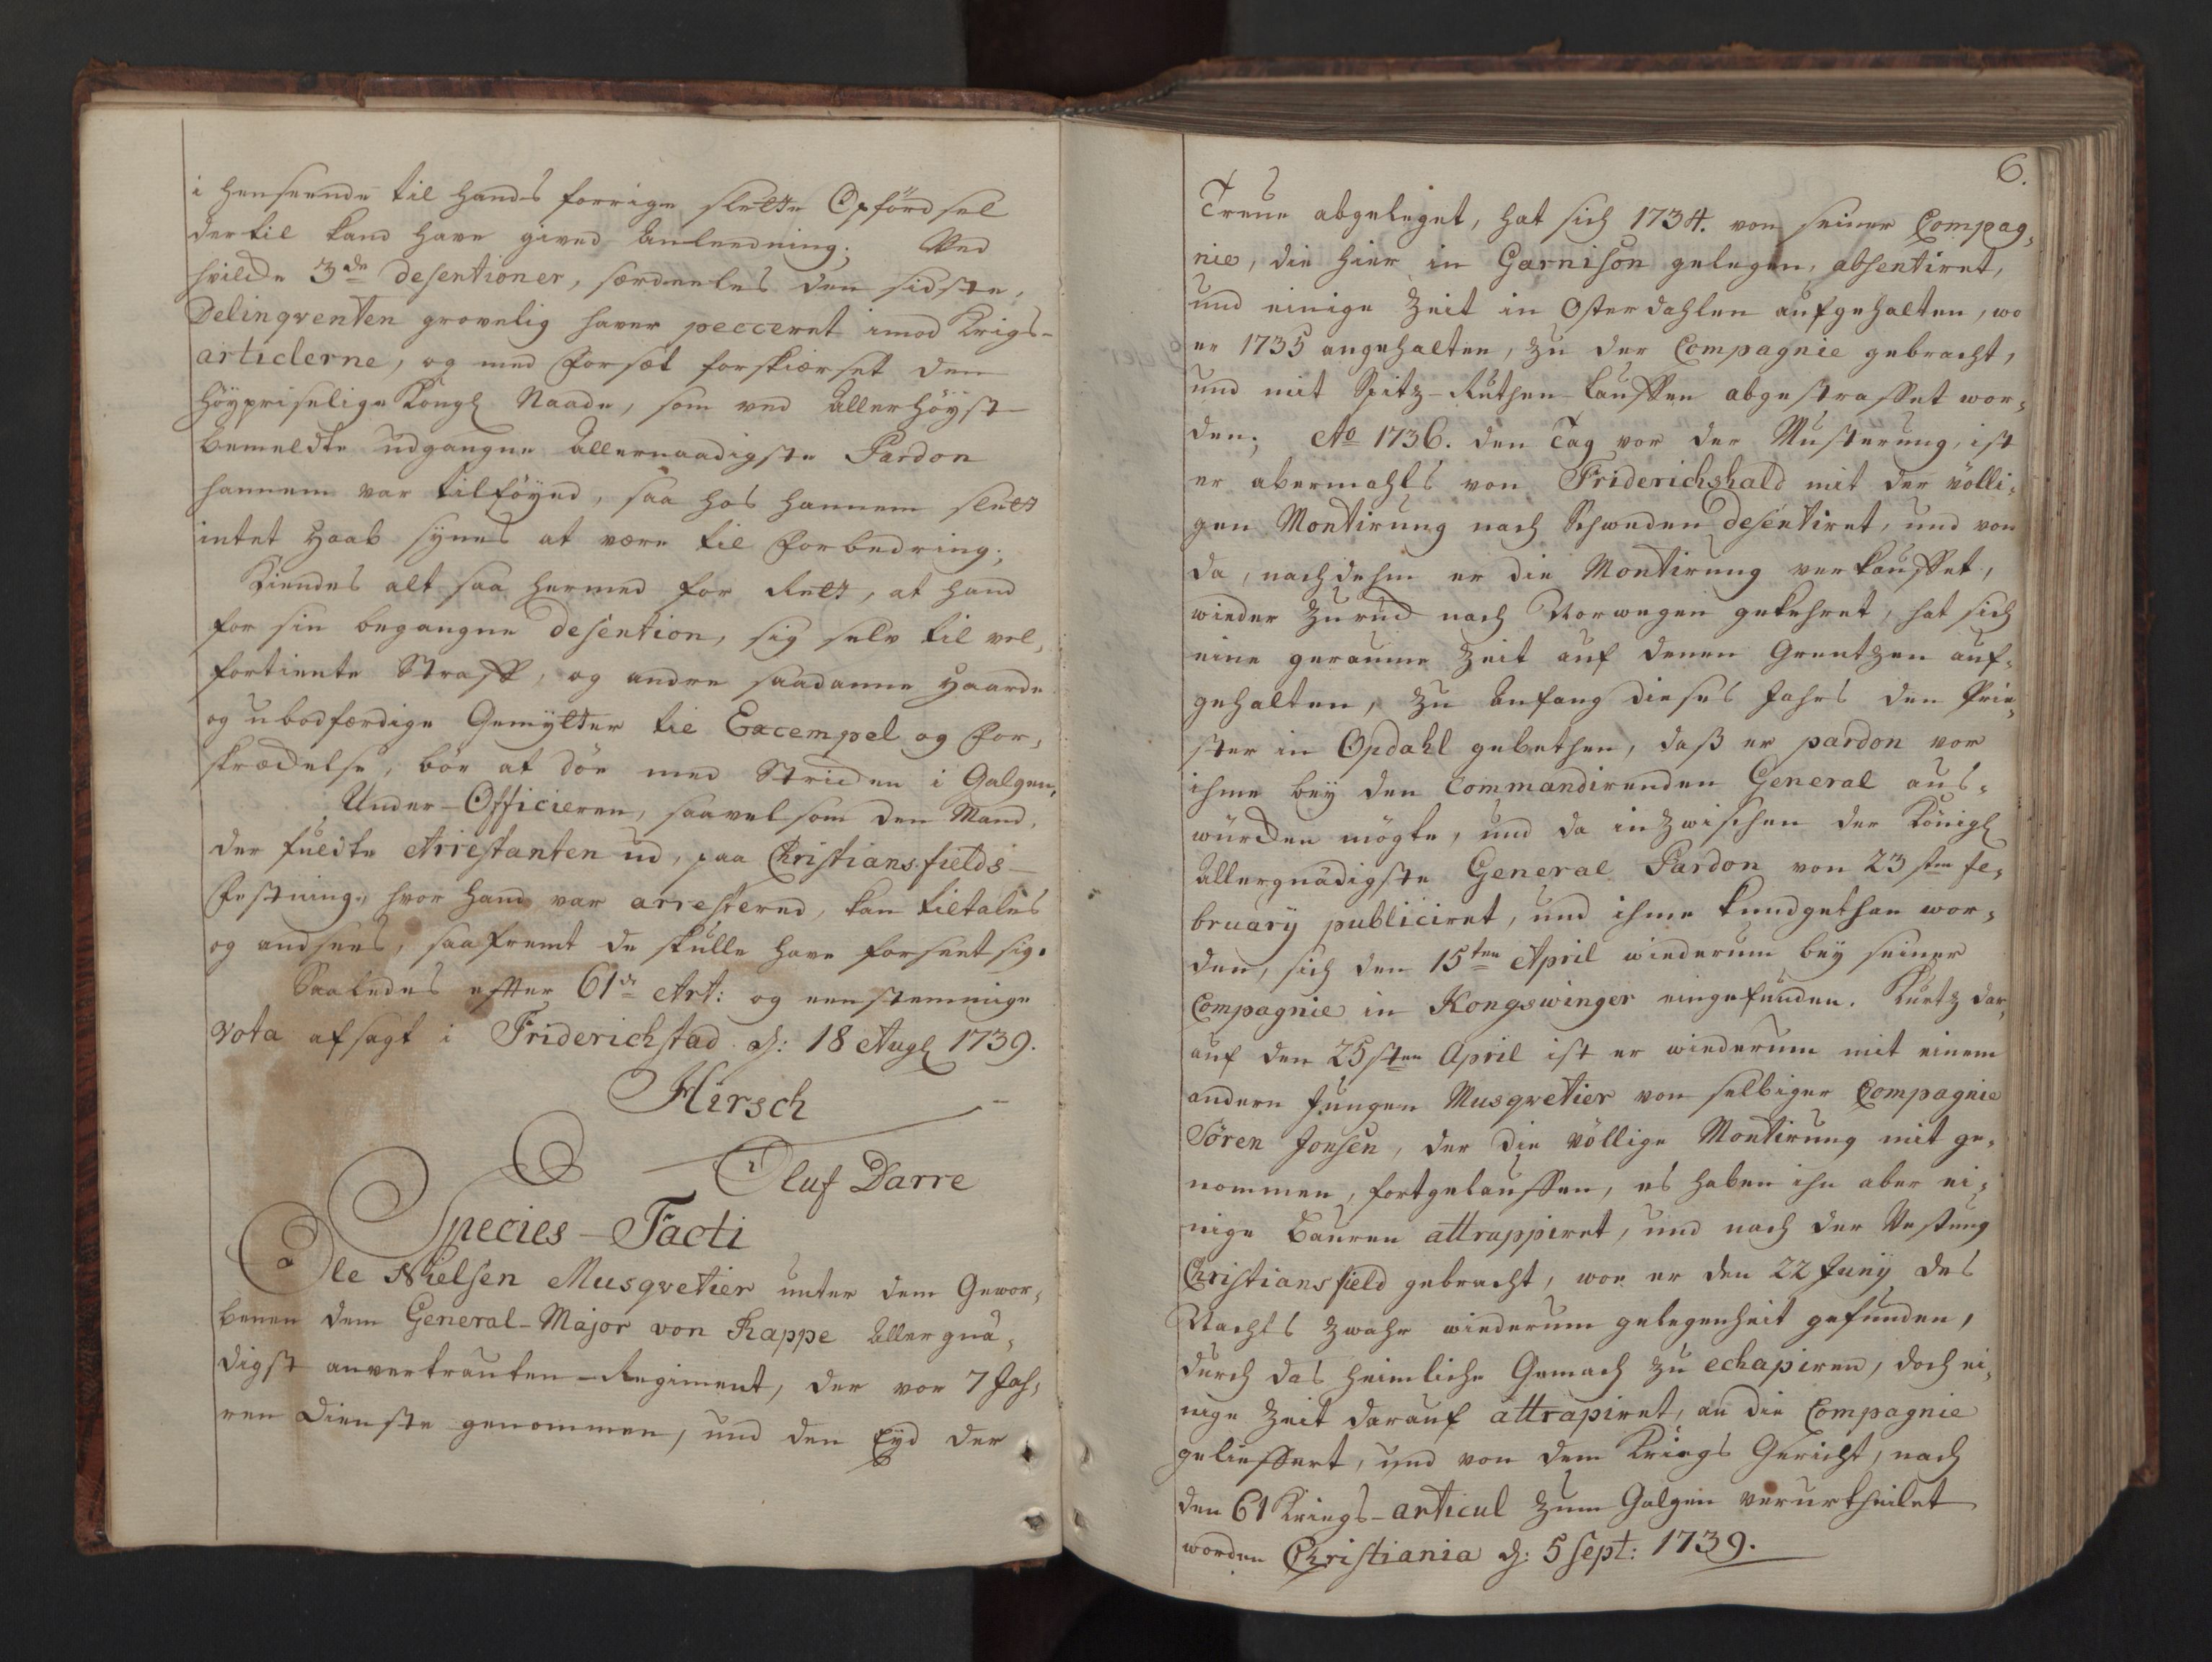 i henseende til hands forrige slette Opførdsel
dertil kand have gived Anleedning; Ved
hvilcke 3de desertioner, særdeeles den sidste,
Delinqventen grovelig haver pecceret imod Krigs-
articlerne, og med Forsæt forskiærset den
høypriselige Kongl Naade, som ved Allerhøyst-
bemeldte udgangne Allernaadigste Pardon
hannem var tilføyed, saa hos hannem slett
intet Haab synes at være til Forbedring;
Kiendes alt saa hermed for Rett, at hand
for sin begangne desertion, sig selv til vel,
fortiente Straff, og andre saadanne Haarde
og ubodfærdige Gemytter til Excempel og For,
skrækkelse, bør at døe med Stricken i Galgen,
Under-Officieren, saavelsom den Mand,
der fuldte Arrestanten ud, paa Christiansfields-
Festning, hvor hand var arrestered, kan tiltales
og andsees, saafremt de skulle have forseet sig.
Saaledes efter 61de Art: og eenstemmige
vota afsagt i Friderichstad d: 18 Augl 1739.
Hirsch
Oluf Darre
Species-Facti
Ole Nielsen Musqvetier unter dem Gewor,
benen dem General-Major von Rappe Allergnä,
digst anvertrauten-Regiment, der vor 7 Jah,
ren Dienste genommen, und den Eyd der
6.
Treue abgeleget, hat sich 1734. von seiner Compag,
nie, die hier in Garnison gelegen, absentiret,
und einige Zeit in Osterdahlen aufgehalten, wo
er 1735 angehalten, zu der Compagnie gebracht,
und mit Spitz-Ruthen-Lauffen abgestraffet wor,
den; Ao 1736. den Tag vor der Musterung, ist
er abermahls von Friderichshald mit der völli,
gen Montirung nach Schweden desertiret, und von
da, nachdehm er die Montirung verkauffet,
wieder zurück nach Norwegen gekehret, hat sich
eine geraume Zeit auf denen Grentzen auf,
gehalten, zu Anfang dieses Jahrs den Prie,
ster in Opdahl gebethen, daß er pardon vor
ihme bey den Commandirenden General aus,
würcken mögte, und da inzwischen der Königl
Allergnädigste General Pardon von 23sten Fe,
bruary publiciret, und ihme kundgethan wor,
den, sich den 15ten April wiederum bey seiner
Compagnie in Kongswinger eingefunden. Kurtz dar,
auf den 25sten April ist er wiederum mit einem
andern Jungen Musqvetier von selbiger Compagnie
Sören Jonsen, der die völlige Montirung mit ge,
nommen, fortgelauffen, es haben ihn aber ei,
nige Bauren attrappiret, und nach der Vestung
Christiansfield gebracht, wor er den 22 Juny des
Nachts zwahr wiederum gelegenheit gefunden,
durch das heimliche Gemach zu echapiren, doch ei,
nige Zeit darauf attrapiret, an die Compagnie
gelieffert, und von dem Kriegs Gericht, nach
den 61 Kriegs-articul zum Galgen verurtheilet
worden Christiania d: 5 Sept: 1739.